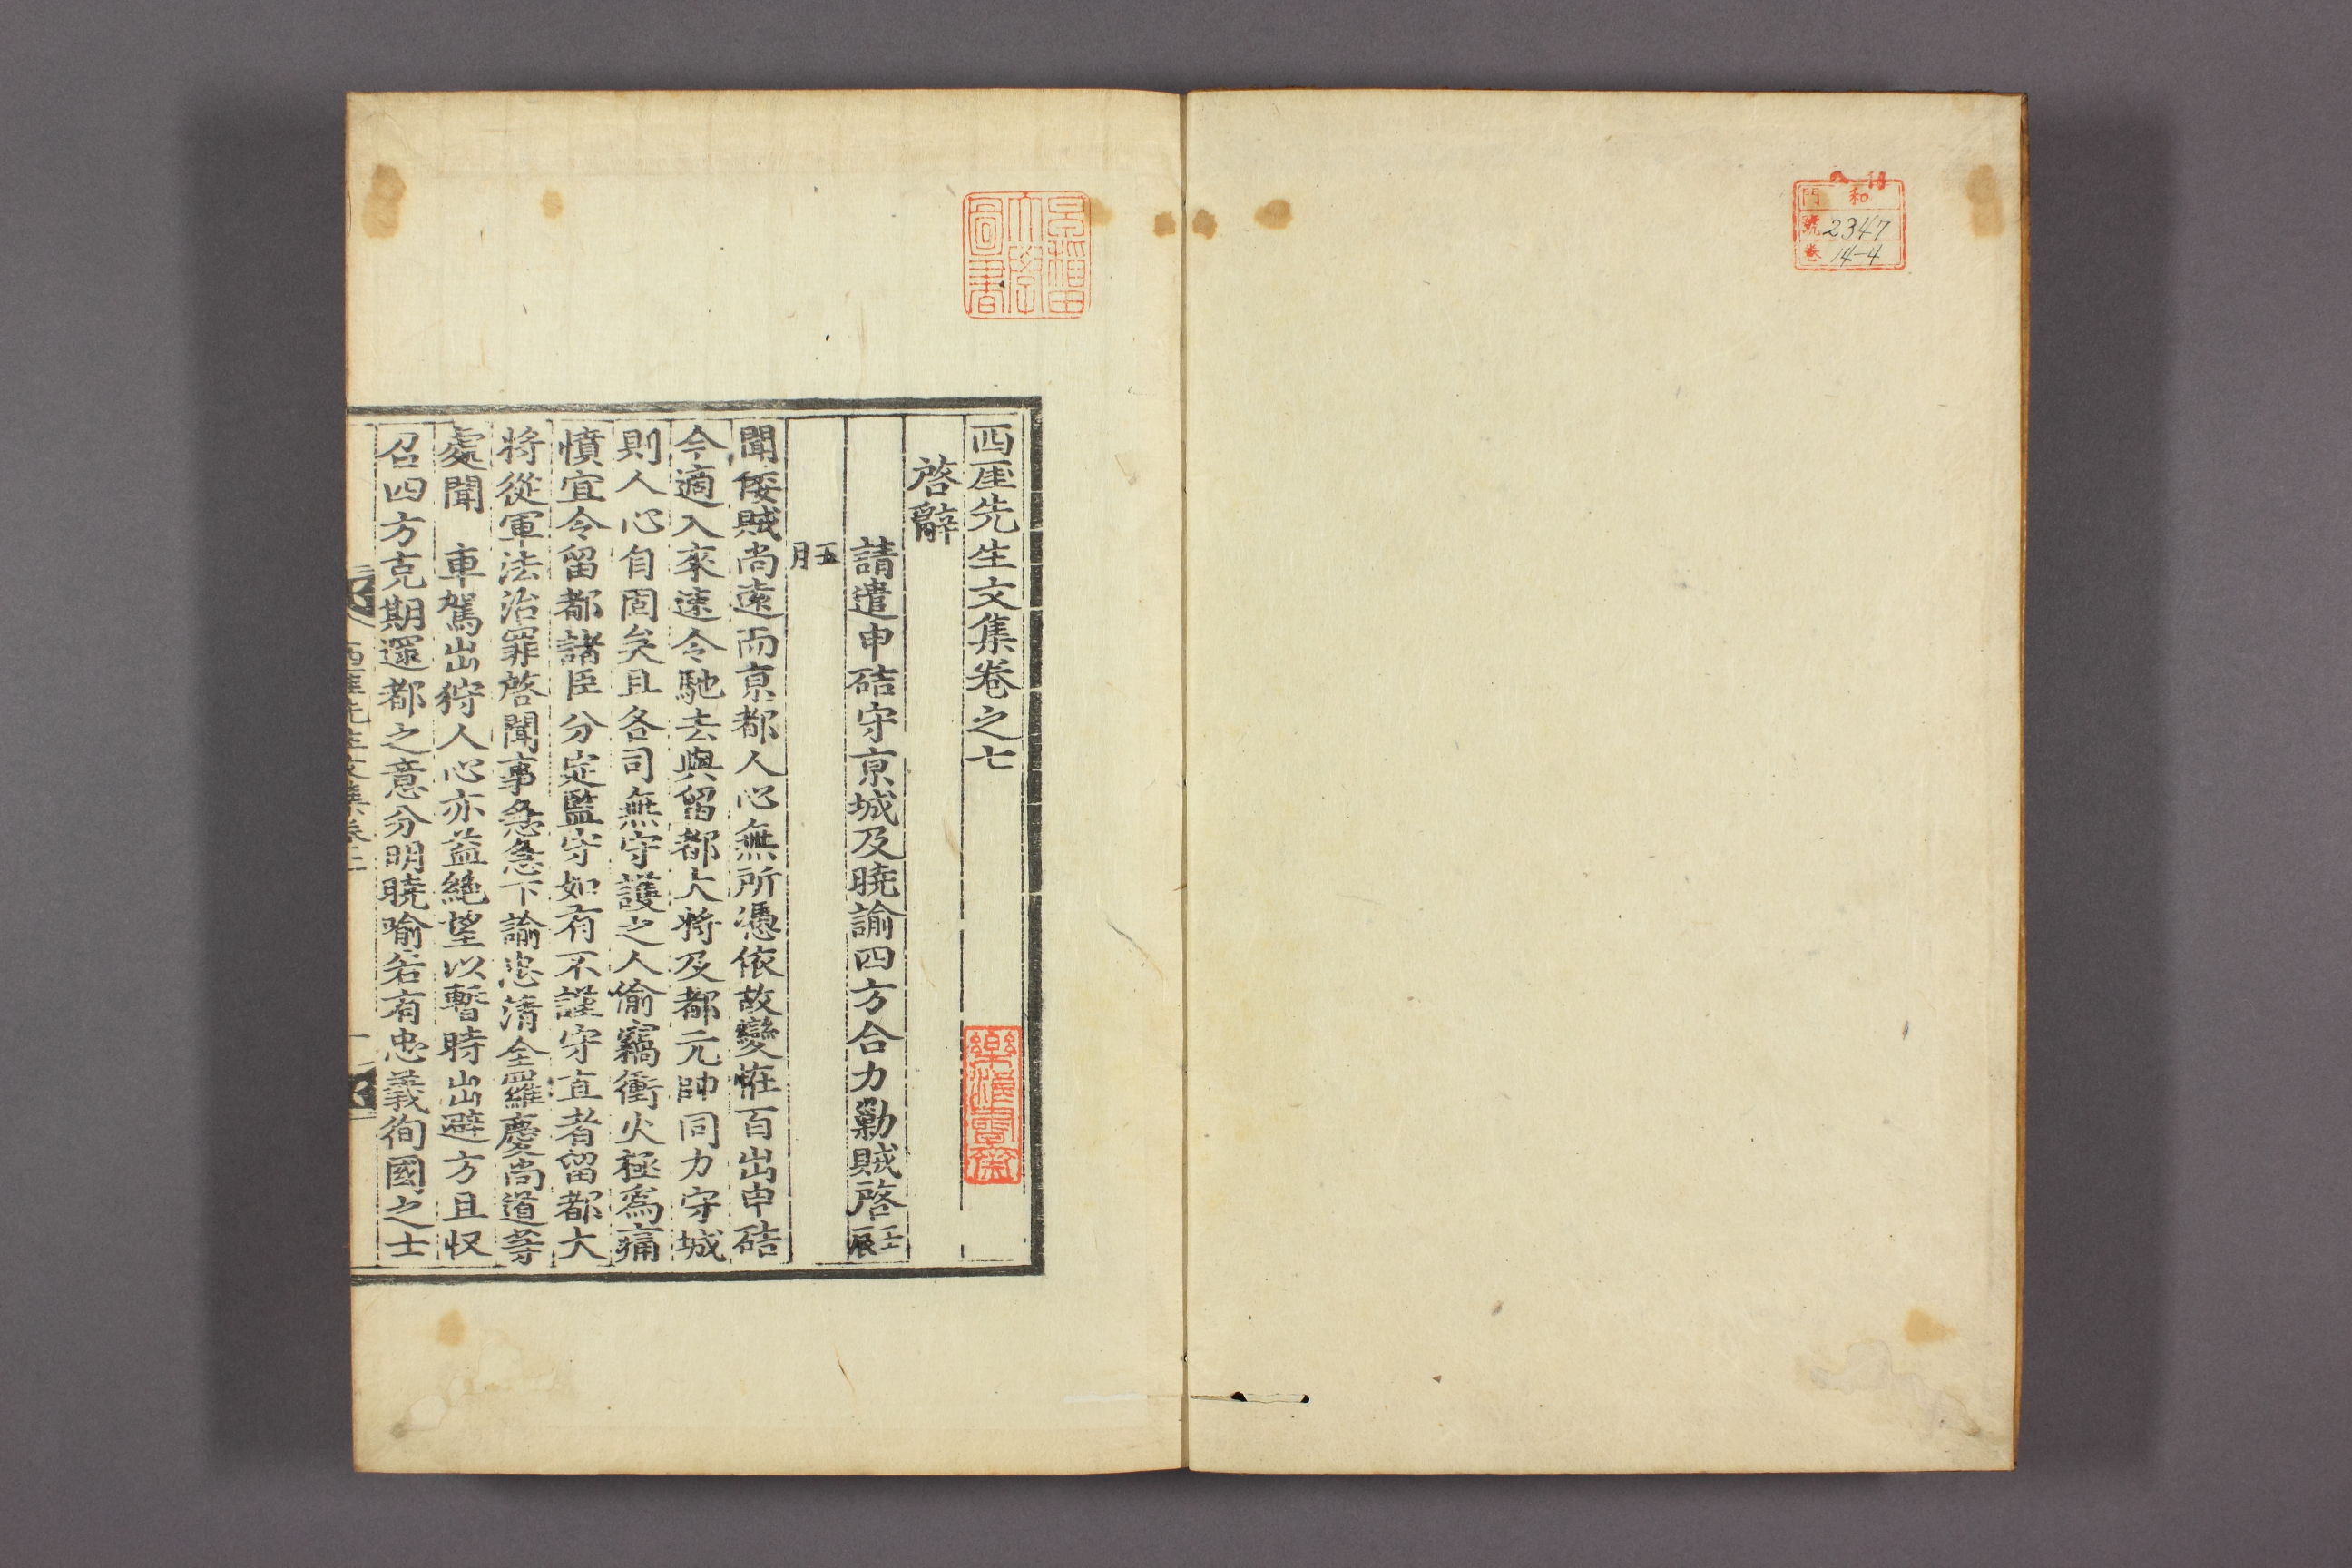 和
門
號 2347
卷 14-4
早稻田大學圖書
西厓先生文集卷之七
啓辭
請遣申硈守京城及曉諭四方合力勦賊啓 壬辰
五月
聞倭賊尙遠而京都人心無所憑依故變恠百出申硈
今適入來速令馳去與留都大將及都元帥同力守城
則人心自固矣且各司無守護之人偷竊衝火極爲痛
憤宜令留都諸臣分定監守如有不謹守直者留都大
將從軍法治罪啓聞事急急下諭忠淸全羅慶尙道等
處聞 車駕出狩人心亦益絶望以暫時出避方且収
召四方克期還都之意分明曉喩若有忠義徇國之士
西厓先生文集卷七
一